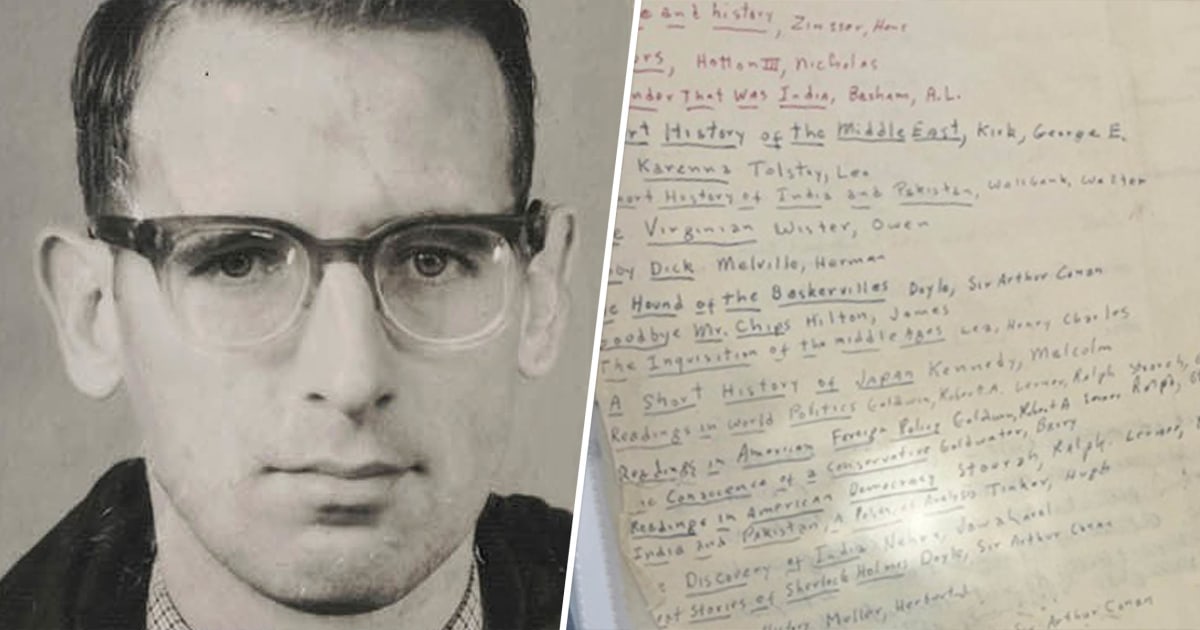 and history, Zinsser, Hans
Hotton III, Nicholas
That Was India, Basham, A.L.
History of the Middle East, Kirk, George E.
Karenna Tolstoy, Leo
History of India and Pakistan, Wallbank, Walter
Virginian Wister, Owen
Dick Melville, Herman
Hound of the Baskervilles Doyle, Sir Arthur Conan
Goodbye Mr. Chips Hilton, James
The Inquisition of the middle Ages Lea, Henry Charles
A Short History of Japan Kennedy, Malcolm
Readings in World Politics Goldwin, Robert A. Lerner, Ralph
Readings in American Foreign Policy Goldwin, Robert A Lerner Ralph,
of a Conservative Goldwater, Barry
Readings in American Democracy Stourzh, Ralph. Lerner,
India and Pakistan, A Analysis Tinker, Hugh
Discovery of India Nehru, Jawaharal
Stories of Sherlock Holmes Doyle, Sir Arthur Conan
Muller, Herbert J
Sir Arthur Conan